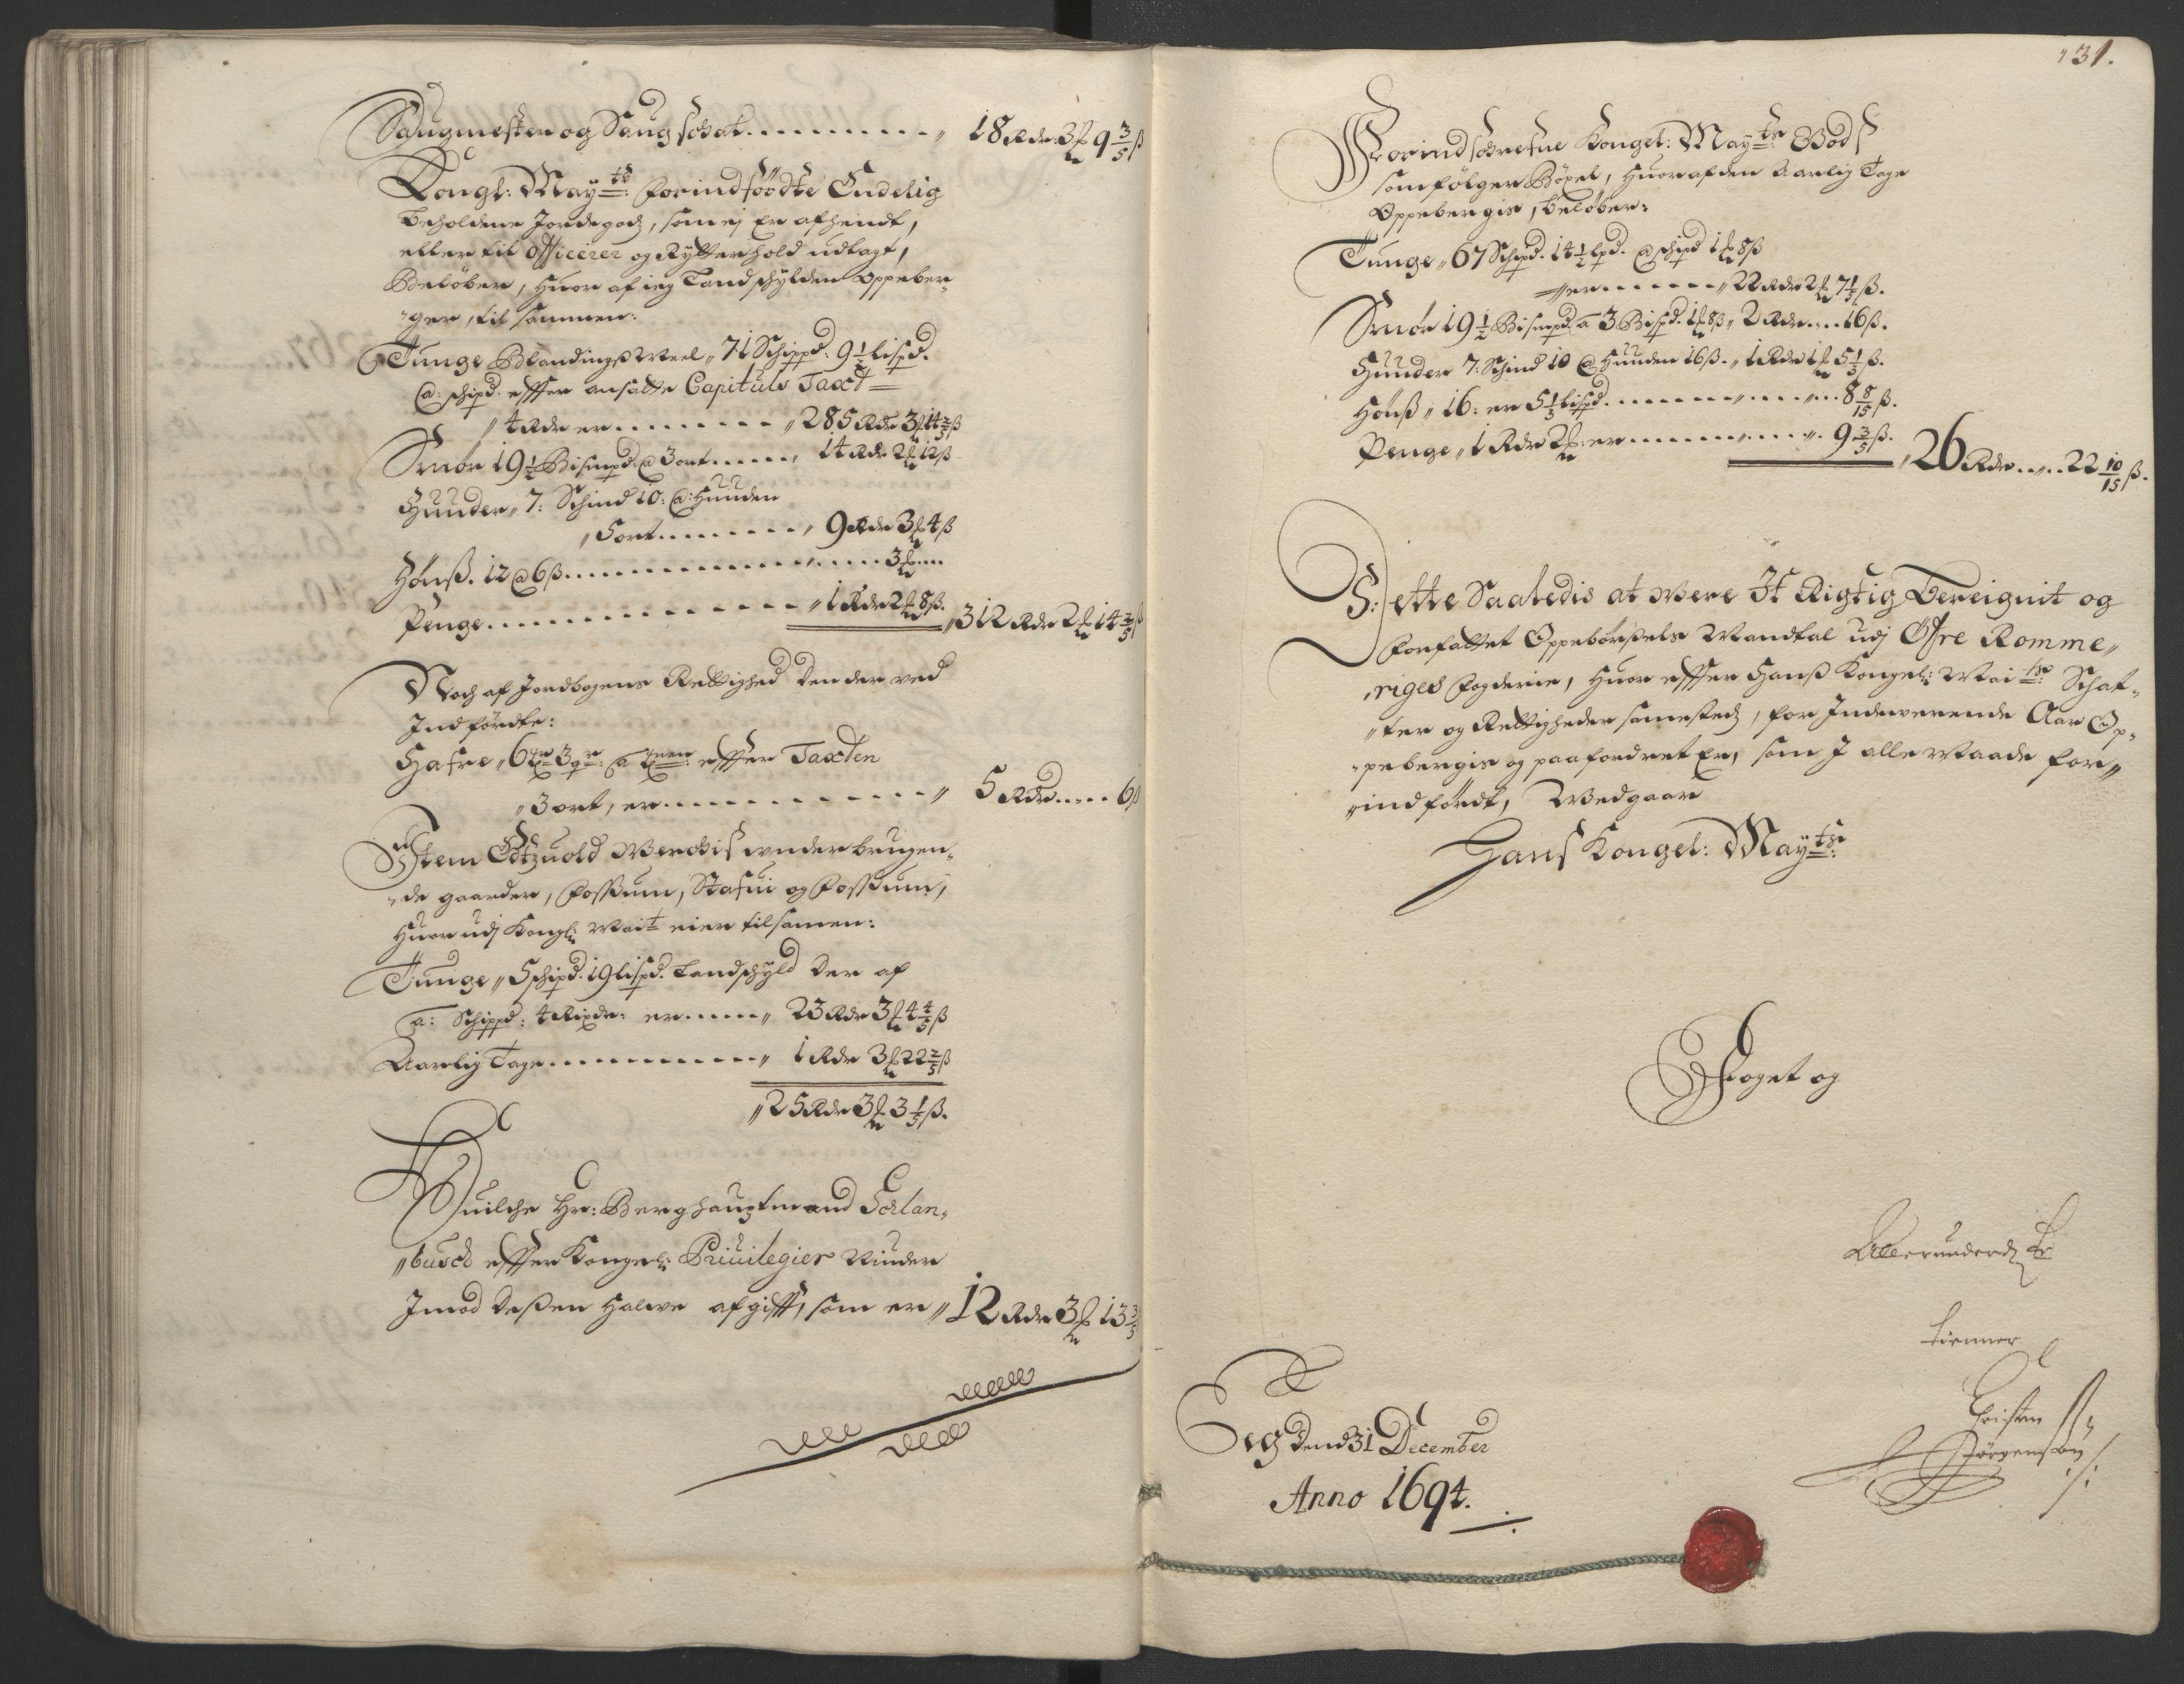 Saugmester og Saug schat . . . . . . . . . . „ 18 Rdr 3 ₰ 9 3/5 ß
Kongl: Mayts: forindføördte Endelig
beholdene Jordegods, som ej er afhendt,
eller til Officerer og Rytterhold udlagt,
Beløber, huor af ieg Landschylden oppeber-
-ger, til sammen:
Tunge Blandings Meel „ 71 Schippd. 9 1/2 lispd.
@: schipd. effter ansatte Capituls Taxt
„ 4 Rdr er . . . . . . . . . „ 285 Rdr 3 ₰ 14 2/5 ß
Smør 19 1/2 Bismrpd @ 3 ort . . . . . „ 14 Rdr 2 ₰ 12 ß
Huuder „ 7: Schind 10: @: Huuden
„ 5 ort . . . . . . . . „ 9 Rdr 3 ₰ 4 ß
Hønß. 12 @ 6 ß . . . . . . . . . . . „ . . . . 3 ₰ . . .
Penge . . . . . . . . . . . . . . „ 1 Rdr 2 ₰ 8 ß. „ 312 Rdr 2 ₰ 14 2/5 ß
Noch af Jordbogens Rettighed den der ved
Indførdte:
Hafre „ 6 tr 3 qr: a tønen effter Taxten
„ 3 ort, er . . . . . . . . . . . . „ 5 Rdr . . . . 6 ß
Item Odtzuold Werckis under brugen-
-de gaarder, Fossum, Stafui og Fossum,
huor udj Kongl: Mait eier tilsamen:
Tunge „ 5 schipd. 19 lispd. Landschyld der af
a: Schippd: 4 Rixdr: er . . . . . „ 23 Rdr 3 ₰ 4 4/5 ß
Aarlig Tage . . . . . . . . . . . . „ 1 Rdr 3 ₰ 22 2/5 ß
„ 25 Rdr 3 ₰ 3 1/5 ß.
Huilche Hr: Berghauptmand Schlan-
„busch effter Kongel: Priuilegier Niuder
Imod deßen halwe afgifft, som er „ 12 Rdr 3 ₰ 13 3/5
131.
Forindschrefne Kongel: Mayts: Gods
som følger Böxel, huoraf den Aarlig Tage
Oppebergis, beløber:
Tunge „ 67 Schipd. 14 1/2 lpd. @ schipd 1 ₰ 8 ß
er . . . . . . . „ 22 Rdr 2 ₰ 7 1/5 ß.
Smør 19 1/2 Bismrpd a 3 Bispd. 1 ₰ 8 ß „ 2 Rdr . . . . 16 ß.
Huuder 7: Schind 10 @ Huuden 16 ß. „ 1 Rdr 1 ₰ 5 1/3 ß.
Hønß „ 16: er 5 1/3 lispd . . . . . . . . „ . . . „ . . 8 8/15 ß.
Penge „ 1 Rdr 2 ₰: er . . . . . . . . „ . . . „ . 9 3/5 ß. „ 26 Rdr . . „ . . 22 10/15 ß.
Dette Saaledis at were It Rigtig Bereignit og
forfattet Oppebørßels Mandtal udj Øfre Romme„
„riges fogderie, huor effter Hanß Kongel: Maits: Schat-
„ter og Rettigheder sammesteds, for Indewerende Aar Op-
-pebergis og paafordret er, som I alle Maade for„
„indførdt, Wedgaar
Hans Kongel: Mayts:
Foget og
Allerunderds Tr
tienner
Christen
Jörgensøn
Eeg dend 31 December
Anno 1694.